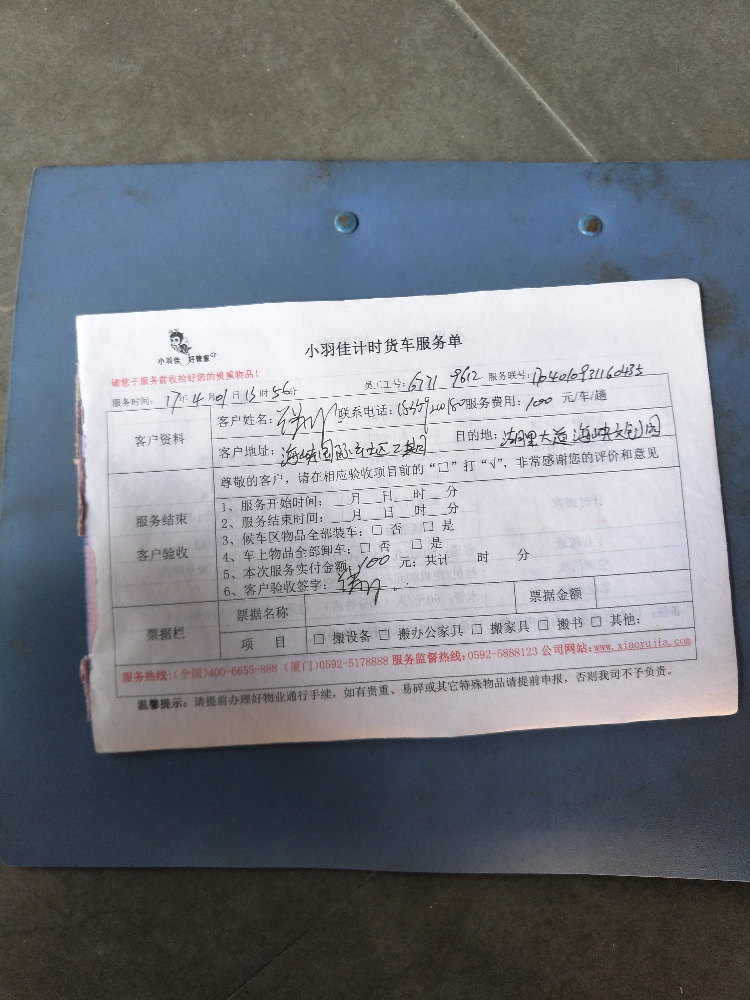 小羽佳 好管家
小羽佳计时货车服务单
请您于服务前收拾好您的贵重物品！
服务时间：17年4月01日13时56分 员工工号：6771 9612 服务联号：1704010931160435
客户资料
客户姓名： 联系电话： 服务费用：100 元/车/趟
客户地址：海峡国际社区二期 目的地：湖里大道海峡文创园
尊敬的客户，请在相应验收项目前的“□”打“√”，非常感谢您的评价和意见
服务结束
客户验收
1、服务开始时间： 月 日 时 分
2、服务结束时间： 月 日 时 分
3、候车区物品全部装车：□ 否 □ 是
4、车上物品全部卸车：□ 否 □ 是
5、本次服务实付金额：100 元；共计 时 分
6、客户验收签字：
票据栏
票据名称 票据金额
项 目 □ 搬设备 □ 搬办公家具 □ 搬家具 □ 搬书 □ 其他：
服务热线：(全国)400-6655-888 (厦门)0592-5178888 服务监督热线：0592-5888123 公司网站：www.xiaoyujia.com
温馨提示：请提前办理好物业通行手续，如有贵重、易碎或其它特殊物品请提前申报，否则我司不予负责。